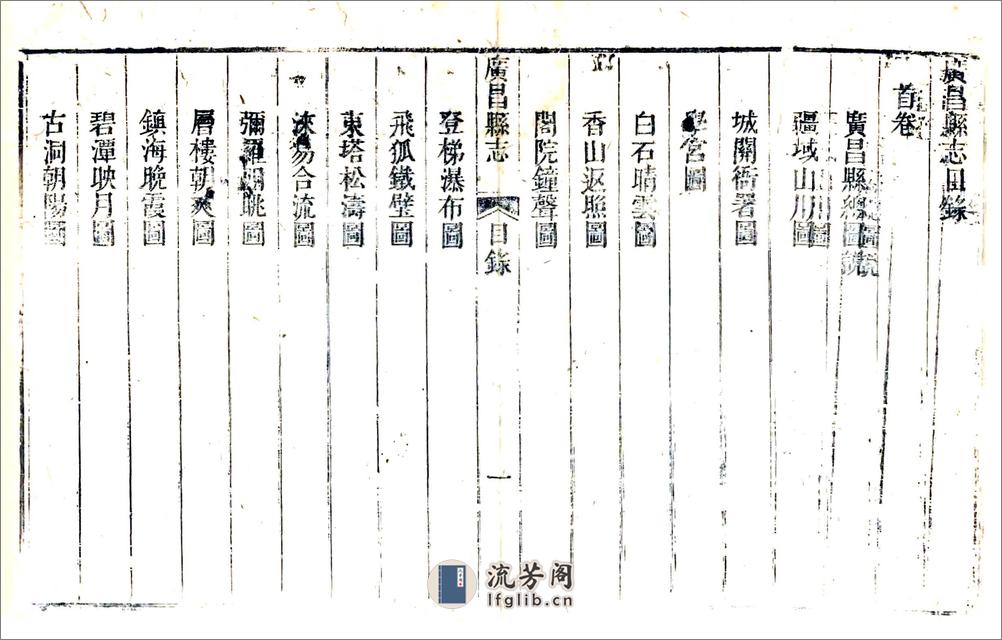 廣昌縣志目錄
首卷
廣昌縣總圖說
疆域山川圖
城關衙署圖
學宮圖
白石晴雲圖
香山返照圖
閣院鐘聲圖
廣昌縣志 目錄 一
登梯瀑布圖
飛狐鐵壁圖
東塔松濤圖
淶易合流圖
彌羅眺
層樓朝爽圖
鎮海晚霞圖
碧潭映月圖
古洞朝陽圖
流芳阁
lfglib.cn